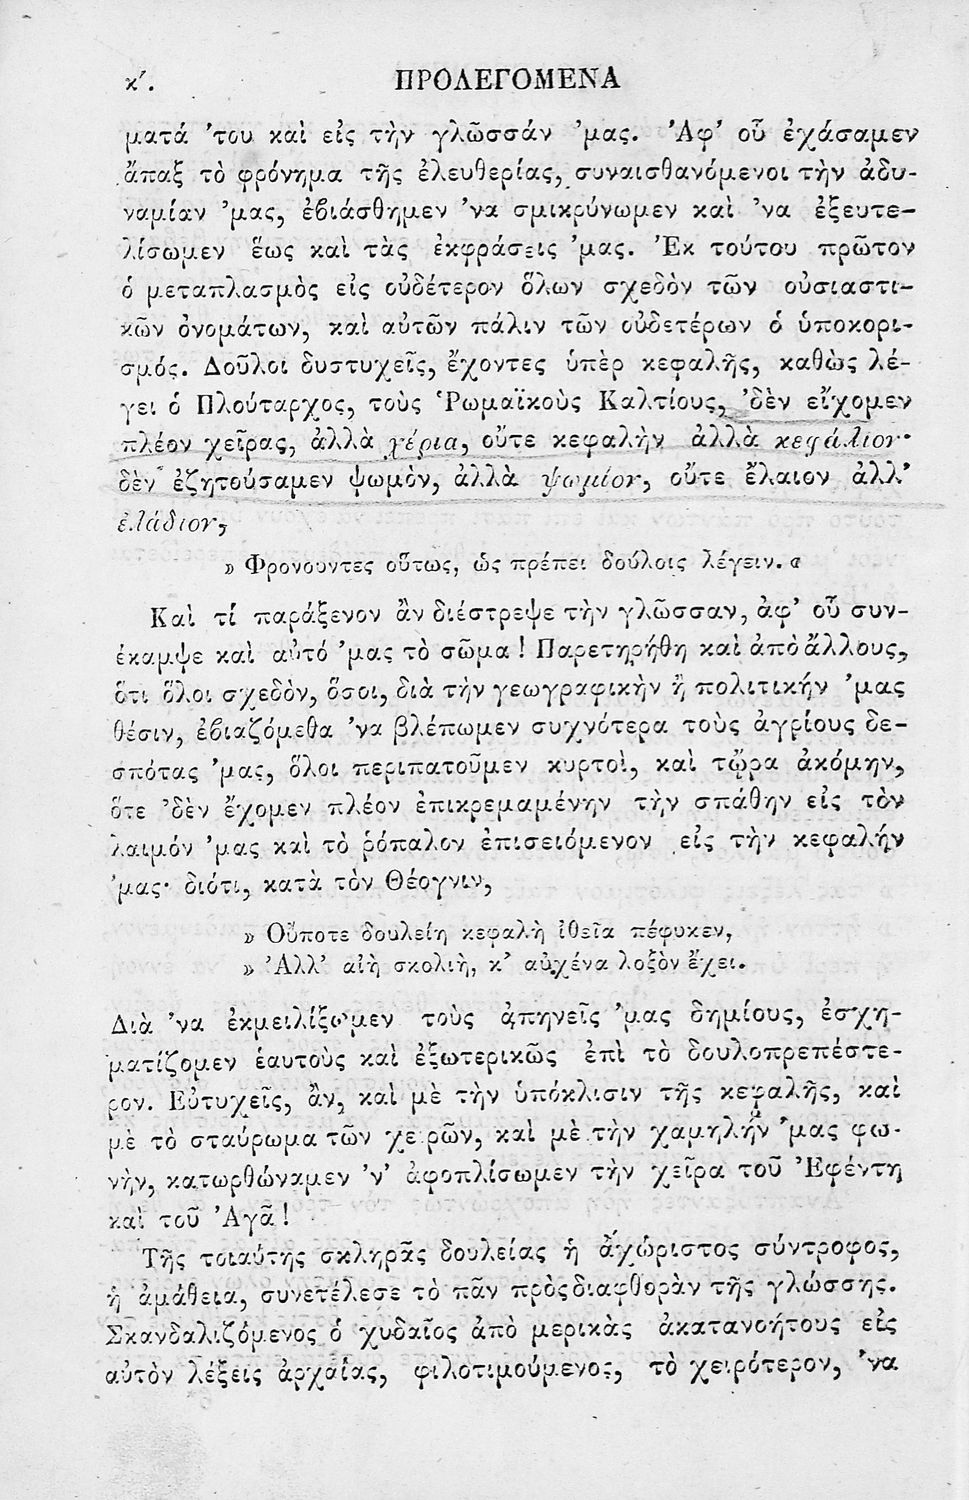 κ´. ΠΡΟΛΕΓΟΜΕΝΑ
ματά 'του καὶ εἰς τὴν γλῶσσάν 'μας. Ἀφ' οὗ ἐχάσαμεν
ἅπαξ τὸ φρόνημα τῆς ἐλευθερίας, συναισθανόμενοι τὴν ἀδυ-
ναμίαν 'μας, ἐβιάσθημεν 'να σμικρύνωμεν καὶ 'να ἐξευτε-
λίσωμεν ἕως καὶ τὰς ἐκφράσεις 'μας. Ἐκ τούτου πρῶτον
ὁ μεταπλασμὸς εἰς οὐδέτερον ὅλων σχεδὸν τῶν οὐσιαστι-
κῶν ὀνομάτων, καὶ αὐτῶν πάλιν τῶν οὐδετέρων ὁ ὑποκορι-
σμός. Δοῦλοι δυστυχεῖς, ἔχοντες ὑπὲρ κεφαλῆς, καθὼς λέ-
γει ὁ Πλούταρχος, τοὺς Ῥωμαϊκοὺς Καλτίους, 'δὲν εἴχομεν
πλέον χεῖρας, ἀλλὰ χέρια, οὔτε κεφαλὴν ἀλλὰ κεφάλιον·
δὲν ἐζητούσαμεν ψωμὸν, ἀλλὰ ψωμίον, οὔτε ἔλαιον ἀλλ'
ἐλάδιον,
» Φρονουντες οὕτως, ὡς πρέπει δούλοις λέγειν. «
Καὶ τί παράξενον ἂν διέστρεψε τὴν γλῶσσαν, ἀφ' οὗ συν-
έκαμψε καὶ αὐτό 'μας τὸ σῶμα! Παρετηρήθη καὶ ἀπὸ ἄλλους,
ὅτι ὅλοι σχεδὸν, ὅσοι, διὰ τὴν γεωγραφικὴν ἢ πολιτικήν 'μας
θέσιν, ἐβιαζόμεθα 'να βλέπωμεν συχνότερα τοὺς ἀγρίους δε-
σπότας 'μας, ὅλοι περιπατοῦμεν κυρτοὶ, καὶ τῴρα ἀκόμην,
ὅτε 'δὲν ἔχομεν πλέον ἐπικρεμαμένην τὴν σπάθην εἰς τὸν
λαιμόν 'μας καὶ τὸ ῥόπαλον ἐπισειόμενον εἰς τὴν κεφαλήν
'μας· διότι, κατὰ τὸν Θέογνιν,
» Οὔποτε δουλείη κεφαλὴ ἰθεῖα πέφυκεν,
» Ἀλλ' αἰὴ σκολιὴ, κ' αὐχένα λοξὸν ἔχει.
Διὰ 'να ἐκμειλίξωμεν τοὺς ἀπηνεῖς 'μας δημίους, ἐσχη-
ματίζομεν ἑαυτοὺς καὶ ἐξωτερικῶς ἐπὶ τὸ δουλοπρεπέστε-
ρον. Εὐτυχεῖς, ἂν, καὶ μὲ τὴν ὑπόκλισιν τῆς κεφαλῆς, καὶ
μὲ τὸ σταύρωμα τῶν χειρῶν, καὶ μὲ τὴν χαμηλήν 'μας φω-
νὴν, κατωρθώναμεν 'ν' ἀφοπλίσωμεν τὴν χεῖρα τοῦ Ἐφέντη
καὶ τοῦ Ἀγᾶ!
Τῆς τοιαύτης σκληρᾶς δουλείας ἡ ἀχώριστος σύντροφος,
ἡ ἀμάθεια, συνετέλεσε τὸ πᾶν πρὸς διαφθορὰν τῆς γλώσσης.
Σκανδαλιζόμενος ὁ χυδαῖος ἀπὸ μερικὰς ἀκατανοήτους εἰς
αὐτὸν λέξεις ἀρχαίας, φιλοτιμούμενος, τὸ χειρότερον, 'να